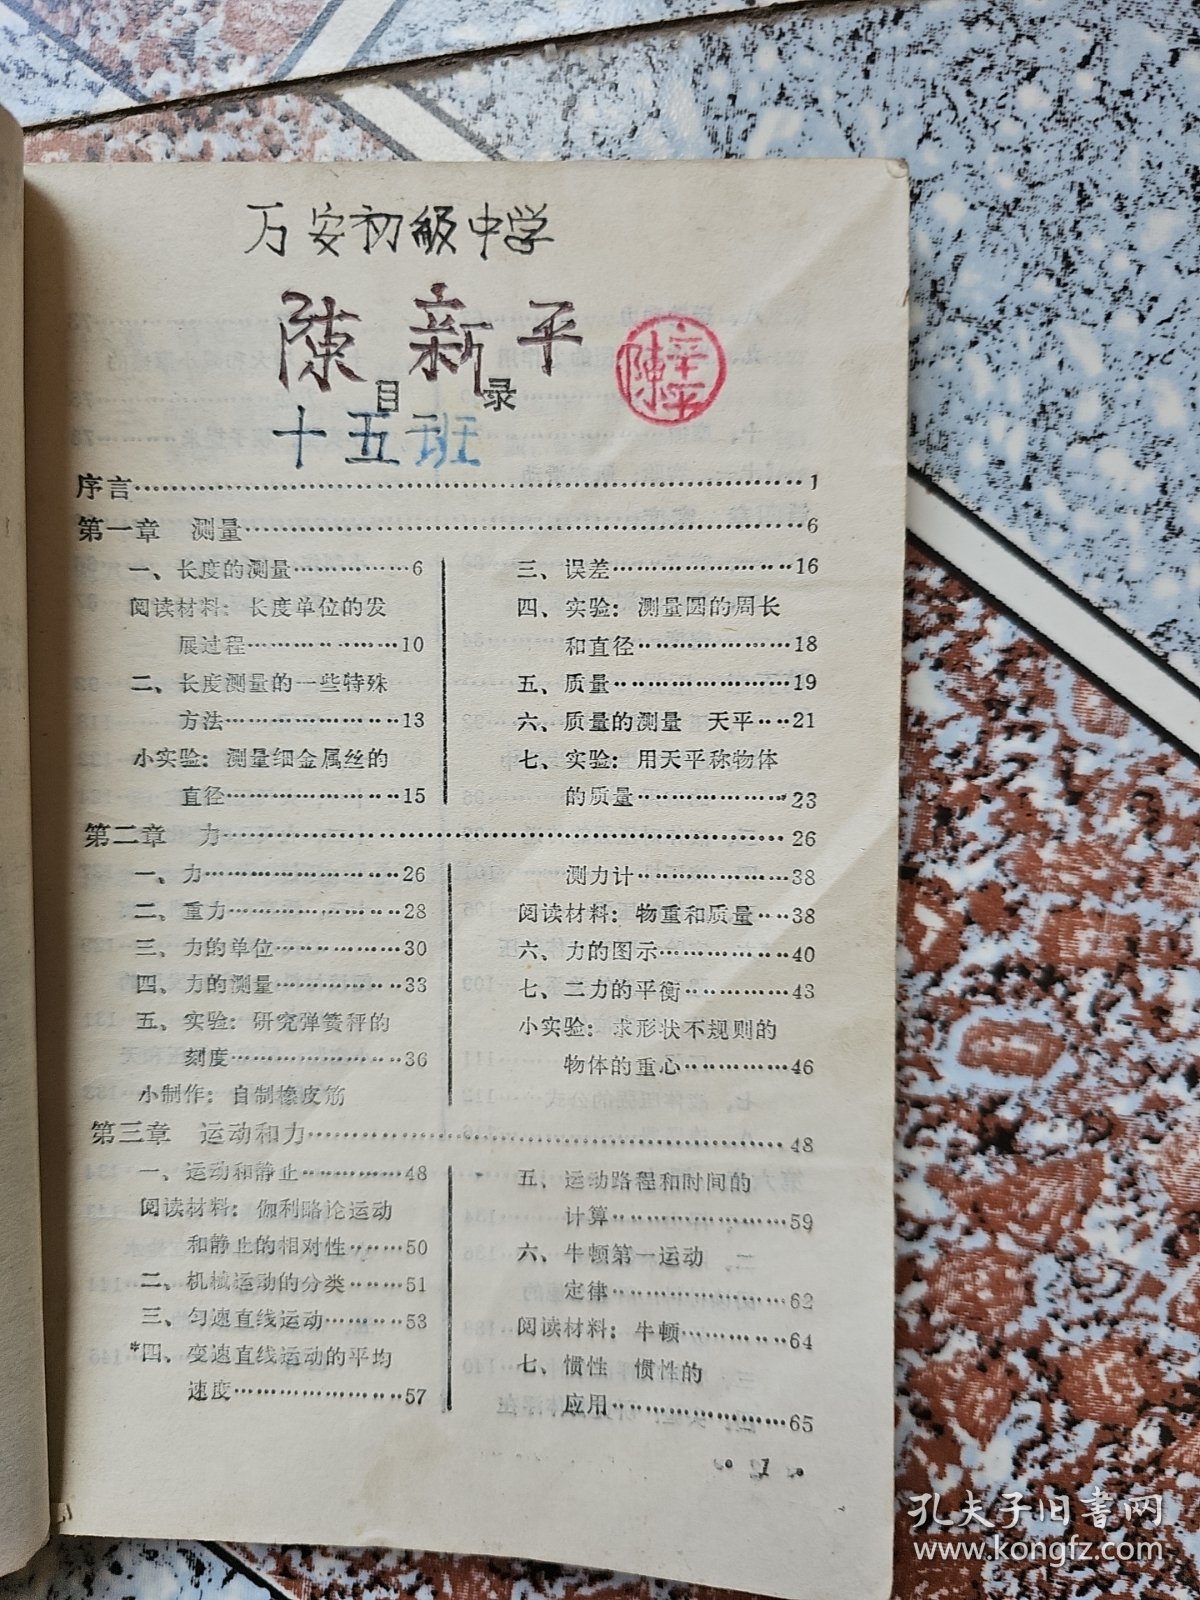 万安初級中学
陳新平
陳平
目录
十五班
序言……1
第一章 测量……6
一、长度的测量……6
阅读材料：长度单位的发
展过程……10
二、长度测量的一些特殊
方法……13
小实验：测量细金属丝的
直径……15
三、误差……16
四、实验：测量圆的周长
和直径……18
五、质量……19
六、质量的测量 天平……21
七、实验：用天平称物体
的质量……23
第二章 力……26
一、力……26
二、重力……28
三、力的单位……30
四、力的测量……33
五、实验：研究弹簧秤的
刻度……36
小制作：自制橡皮筋
测力计……38
阅读材料：物重和质量……38
六、力的图示……40
七、二力的平衡……43
小实验：求形状不规则的
物体的重心……46
第三章 运动和力……48
一、运动和静止……48
阅读材料：伽利略论运动
和静止的相对性……50
二、机械运动的分类……51
三、匀速直线运动……53
*四、变速直线运动的平均
速度……57
五、运动路程和时间的
计算……59
六、牛顿第一运动
定律……62
阅读材料：牛顿……64
七、惯性 惯性的
应用……65
• 1 •
孔夫子旧书网
www.kongfz.com